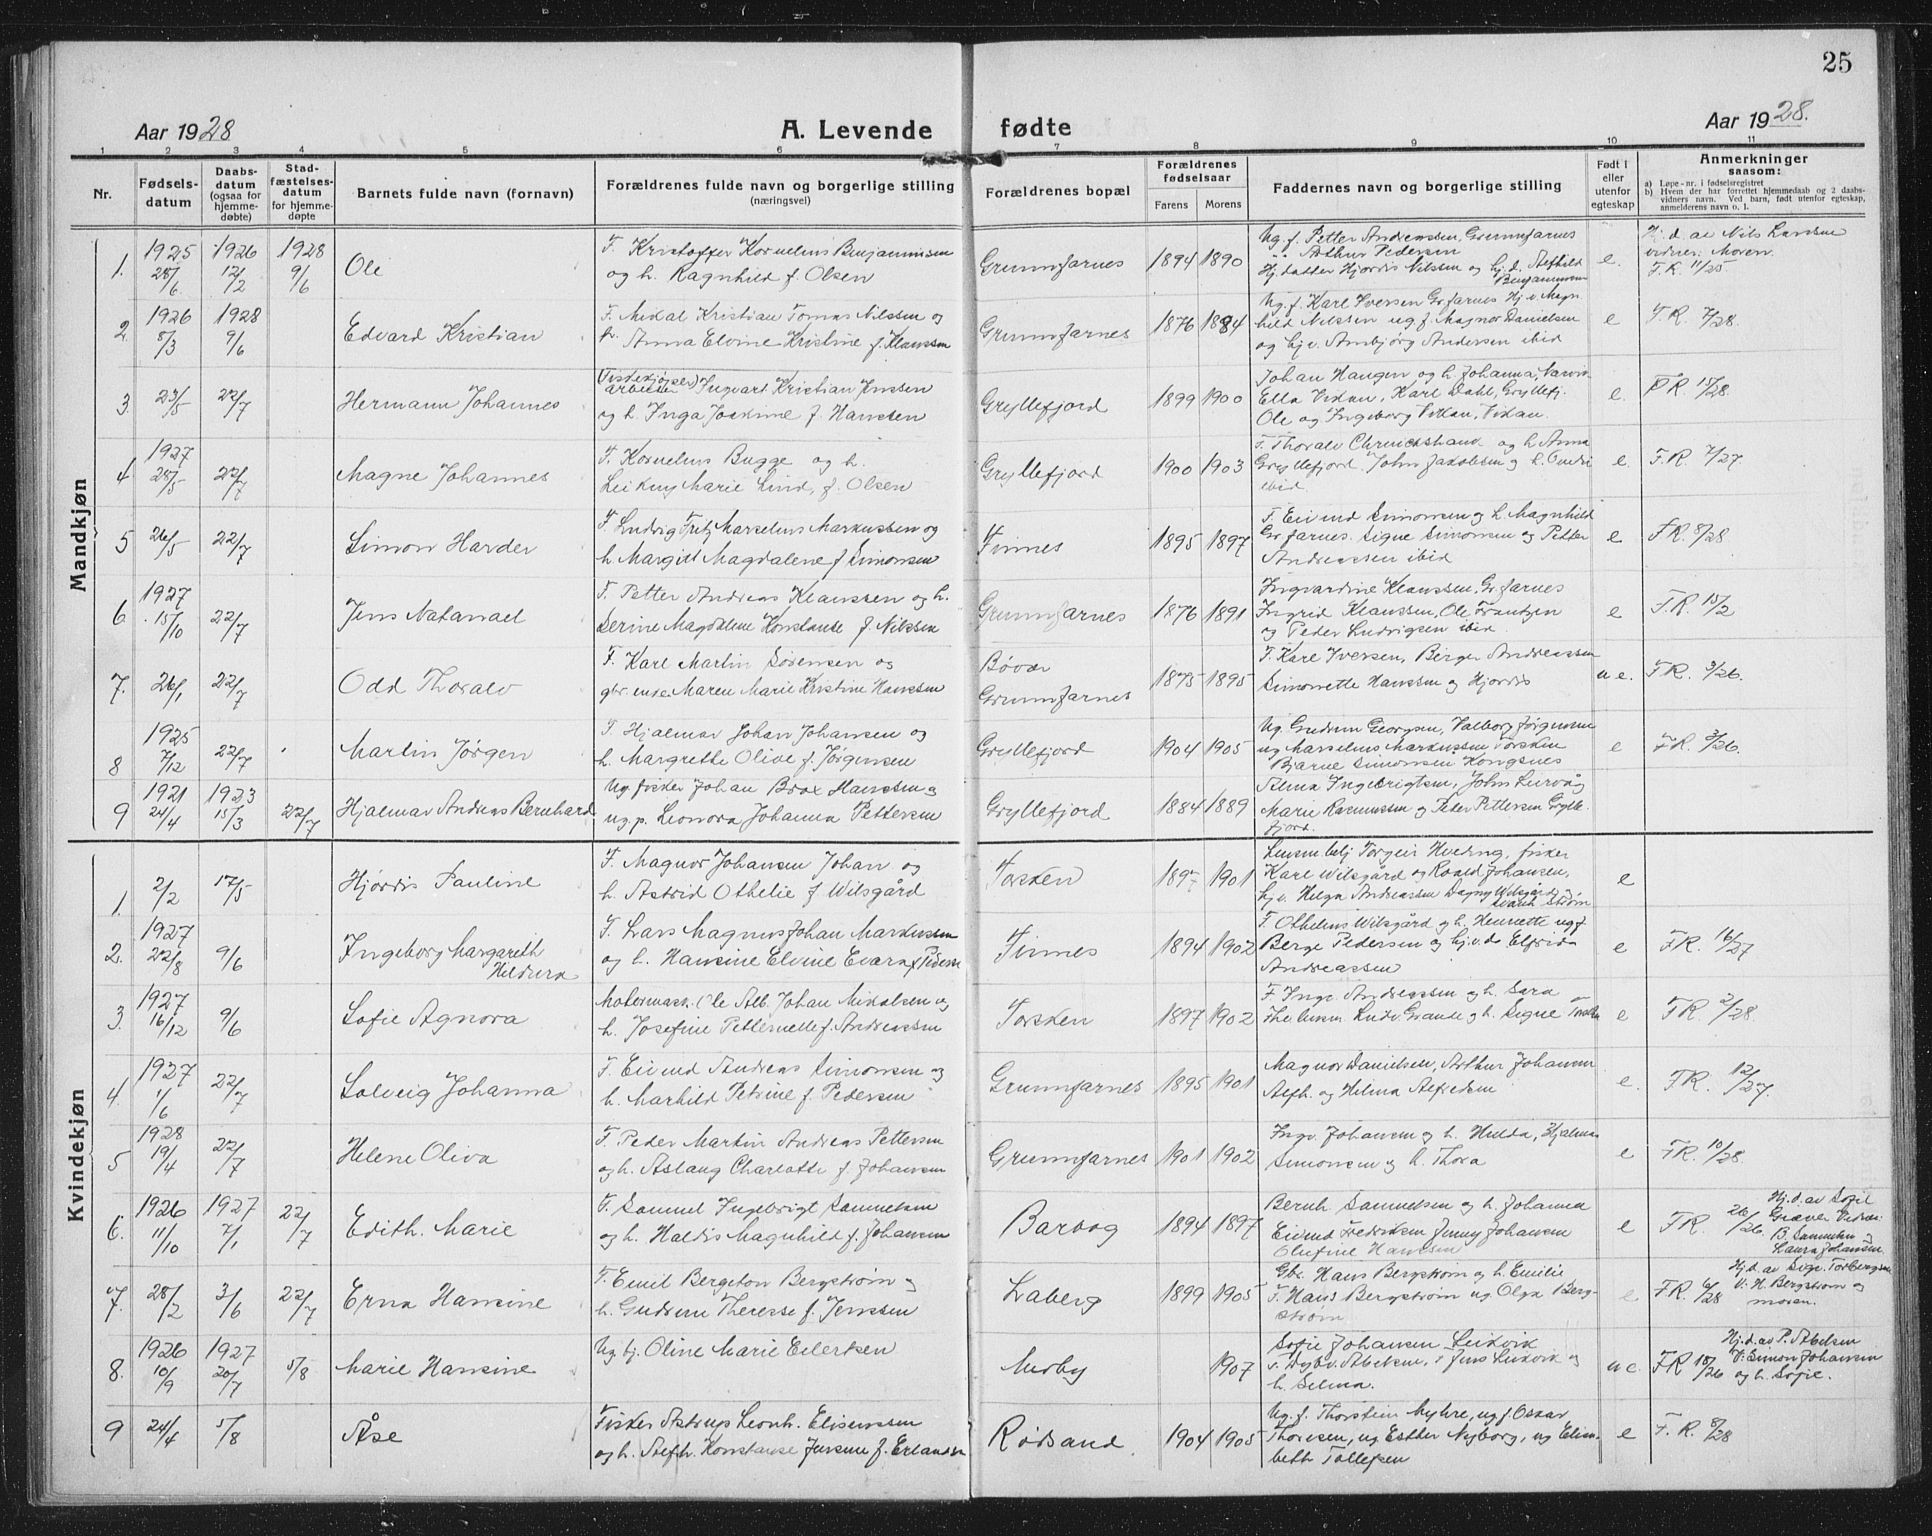 25
Aar 1928
A. Levende fødte
Aar 1928.
1 2 3 4 5 6 7 8 9 10 11
Nr.
Fødsels-
datum
Daabs-
datum
(ogsaa for
hjemme-
døbte)
Stad-
fæstelses-
datum
for hjemme-
døpte
Barnets fulde navn (fornavn)
Forældrenes fulde navn og borgerlige stilling
(næringsvei)
Forældrenes bopæl
Forældrenes
fødselsaar
Farens Morens
Faddernes navn og borgerlige stilling
Født i
eller
utenfor
egteskap
Anmerkninger
saasom:
a) Løpe-nr. i fødselsregistret
b) Hvem der har forrettet hjemmedaab og 2 daabs-
vidners navn. Ved barn, født utenfor egteskap,
anmelderens navn o. l.
Mandkjøn
1. 1925 28/6 1926 12/2 1928 9/6 Ole
F. Kristoffer Kornelius Benjaminsen
og h. Ragnhild f. Olsen
Grunnfarnes 1894 1890
Ug. f. Petter Andreassen, Grunnfarnes
" " Arthur Pedersen
Hj. datter Hjørdis Nilssen og hj. d. Alfhild
Benjaminsen
e.
Hj. d. av Nils Larssen
vidner: Moren.
F.R. 11/25
2. 1926 8/3 1928 9/6 Edvard Kristian
F. Mikal Kristian Tomas Nilssen og
h. Anna Elvine Kristine f. Klaussen
Grunnfarnes 1876 1884
Ug. f. Karl Iversen Gr.farnes Hj. v. Magn
hild Nilssen ug. f. Magnor Danielsen
og hj v. Annbjørg Andersen ibid
e F.R. 7/28.
3. 23/5 22/7 Hermann Johannes
arbeider Ingvart Kristian Jenssen
og h. Inga Joakime f. Hanssen
Gryllefjord 1899 1900
Johan Haugen og h Johanna, Narvik
Ella Vikan, Karl Dahl, Gryllefj.
Ole og Ingeborg Vikan, Vikan.
e. F.R. 15/28.
4 1927 28/5 22/7 Magne Johannes
F. Kornelius Bugge og h.
Leikny Marie Lind, f. Olsen
Gryllefjord 1900 1903
F. Thoralv og h Anna
Gryllefjord. John Jakobsen og h.
ibid.
e. F.R. 7/27
5 26/5 22/7 Simon Harder
F Ludvig Fritz Marselius Markussen og
h. Margit Magdalene f Simonsen
Finnes 1895 1897
F. Eivind Simonsen og h. Magnhild
Gr.farnes. Signe Simonsen og Petter
Andreassen ibid
e F.R. 8/28
6 1927 15/10 22/7 Jens Natanael
F. Petter Andreas Klaussen og h.
Serine Magdalene Konstanse f. Nilssen
Grunnfarnes 1876 1891
Ingvardine Klaussen, Gr.farnes
Ingrid Klaussen, Ole Frantzen
og Peder Ludvigsen ibid
e F.R. 15/2
7. 26/1 22/7 Odd Thoralv
F. Karl Martin Sørensen og
gbr. enke Maren Marie Kristine Hanssen
Bøvær
Grunnfarnes
1875 1895
F. Karl Iversen, Berger Andreassen
Simonette Hanssen og Hjørdis
u e. F.R. 3/26.
8 1925 7/12 22/7 Martin Jørgen
F. Hjalmar Johan Johansen og
h. Margrethe Olive f. Jørgensen
Gryllefjord 1904 1905
Ug. Gudrun Georgsen, Valborg Jørgensen
ug Marselius Markussen Torsken
Bjarne Simonsen Kongsnes
e F.R. 3/26.
9 1921 24/4 1923 15/3 22/7 Hjalmar Andreas Bernhard
Ug. fisker Johan Brox Hanssen og
ug. p. Leonora Johanna Pettersen
Gryllefjord 1884 1889
Alma Ingebrigtsen, John Leirvåg
Marie Rasmussen og Peder Pettersen Grylle-
fjord.
Kvindekjøn
1. 2/2 17/5 Hjørdis Pauline
F. Magnor Johansen Johan og
h. Astrid Othelie f Wilsgård
Torsken 1897 1901
Lensm.betj Torgeir Hveding, fisker
Karl Wilsgård og Roald Johansen,
hj v. Helga Andreassen Dagny Wilsgård og
Strøm
e
2. 1927 22/8 9/6 Ingeborg Margareth
Hildura
F. Lars Magnus Johan Markussen
og h. Hansine Elvine Evara f Pedersen
Finnes 1894 1902
F. Othelius Wilsgård og h. Henriette ug f
Berge Pedersen og hj. v. d Elfrida
Andreassen
e F.R. 16/27
3. 1927 16/12 9/6 Sofie Agnora
Motormask. Ole Alb. Johan Mikalsen og
h. Josefine Petternelle f. Andreassen
Torsken 1897 1902
F. Inge Andreassen og h. Sara
Ludv Grande og h. Signe Torsken
e F.R. 2/28.
4. 1927 1/6 22/7 Solveig Johanna
F. Eivind Andreas Simonsen og
h. Marhild Petrine f. Pedersen
Grunnfarnes 1895 1901
Magnor Danielsen, Arthur Johansen
Alfh. og Helma Alfredsen
e. F.R. 12/27.
5 1928 19/4 22/7 Helene Oliva
F. Peder Martin Andreas Pettersen
og h. Aslaug Charlotte f. Johansen
Grunnfarnes 1901 1902
Ingv. Johansen og h. Hilda, Hjalmar
Simonsen og h. Thora
e F.R. 10/28.
6. 1926 11/10 1927 7/1 22/7 Edith. Marie
F. Samuel Ingebrigt Samuelsen
og h. Haldis Magnhild f. Johansen
Barbog 1894 1897
Bernh Samuelsen og h. Johanna
Eivind Fredriksen Jenny Johansen
Olufine Hanssen
e F.R. 26/26.
Hj. d. av Sofie
Græver Vidner:
B. Samuelsen og
Laura Johansen.
7. 28/2 3/6 22/7 Erna Hansine
F. Emil Bergeton Bergstrøm og
h. Gudrun Therese f. Jenssen
Laberg 1899 1905
Gbr. Hans Bergstrøm og h. Emilie
F. Hans Bergstrøm ug Olga Berg-
strøm
e F.R. 6/28
Hj. d. av Torbergsen
V: H. Bergstrøm og
moren.
8. 1926 10/9 1927 20/7 5/8 Marie Hansine
Ug tj. Oline Marie Eilertsen
Medby 1907
Sofie Johansen Leikvik
Abelsen, Jens Leikvik og
h. Selma.
u e. F.R 18/26
Hj. d. av P. Abelsen
V: Simon Johansen
og h. Sofie.
9 24/4 5/8 Åse
Fisker Astrup Leonh. Elisenssen
og h. Alfh. Konstanse Jensine f. Erlandsen
Rødsand. 1904 1905
Ug. f. Thorstein Myhre, ug f Oskar
Thoresen, ug Esther Nyborg, ug Elisa-
beth Tollefsen
e F.R. 8/28